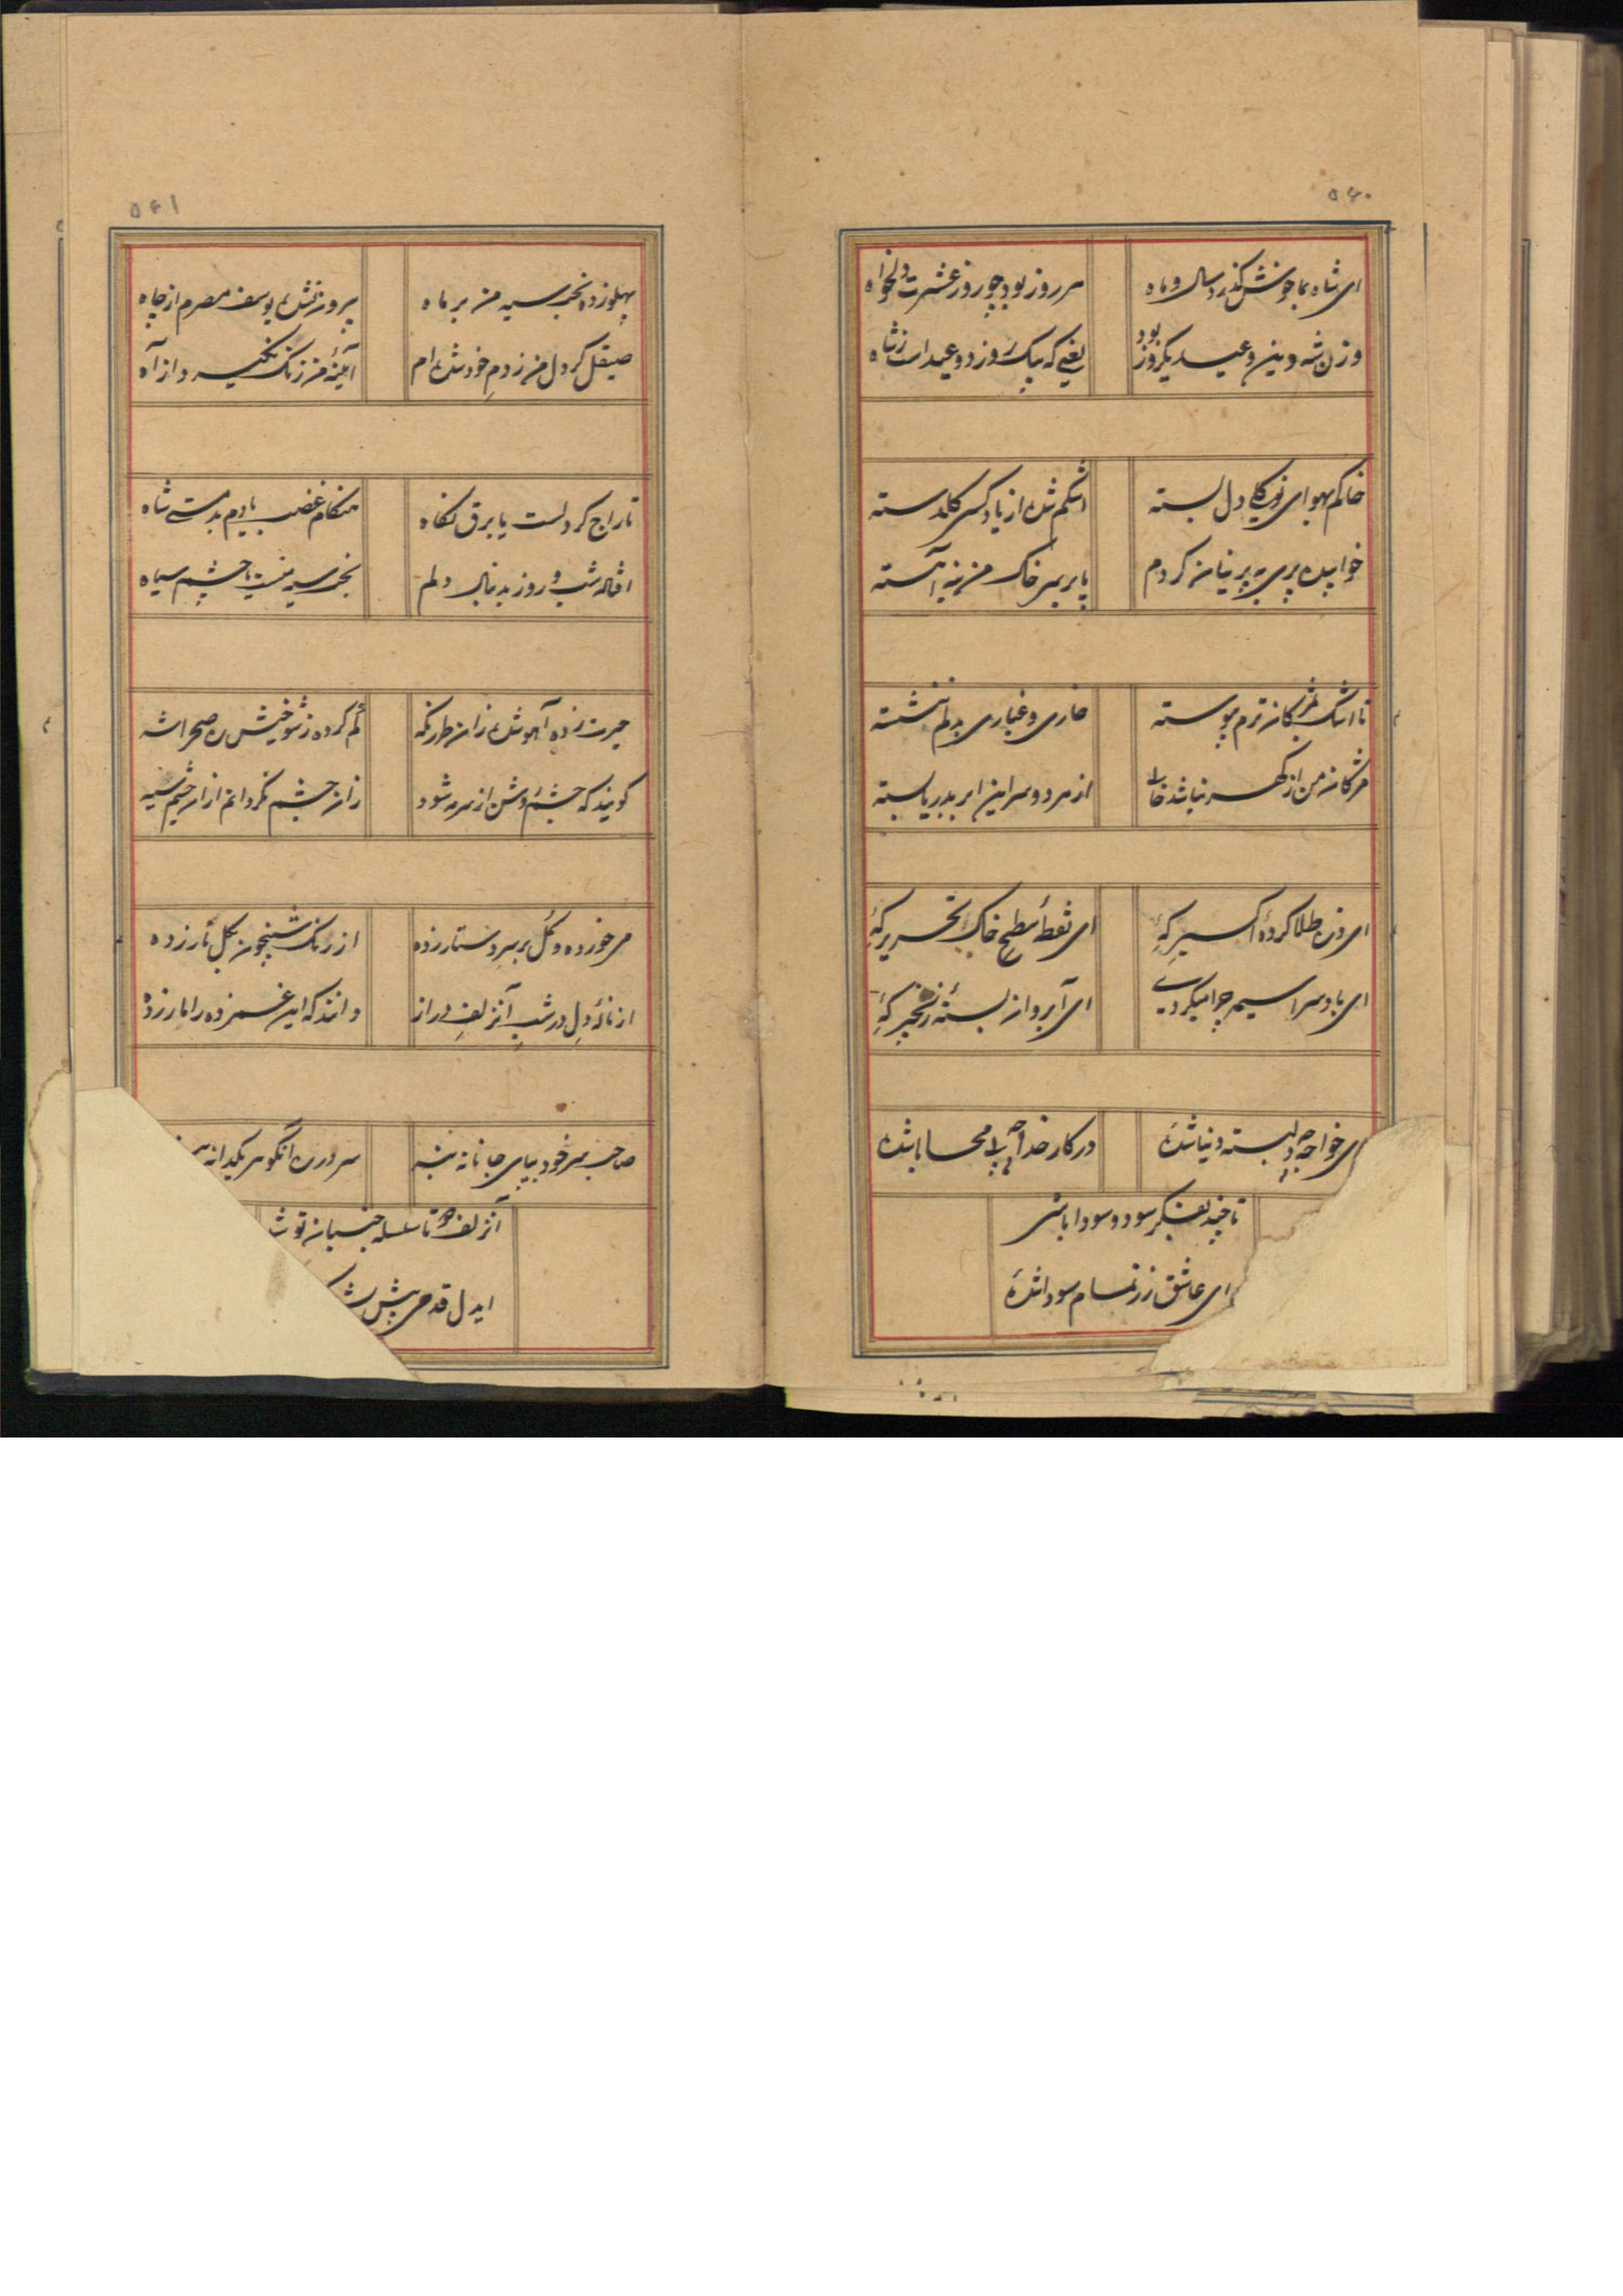 ۵۶۰
ای شاه بما خوش گذرد سال و ماه
هر روز بود چو روز عشرت دلخواه
وزن شه و نین و عید یکروز بود
یعنی که بیک روز دو عید است ز شاه
خاکم بهوای دل بسته
اشکم شده از یاد کسی گلدسته
خوابیده پری به پرنیان کردم
پا بر سر خاک من بنه آهسته
تا اشک بمژگان ترم پیوسته
خاری و غباری بدلم ننشسته
مژگان من از گهر نباشد خالی
از هر دو سر این ابر بدریا بسته
ای ذره طلا کردهٔ اکسیر کهٔ
ای نقطهٔ سطح خاک تحریر کهٔ
ای باد سراسیمه چرا میگردی
ای آب روان بستهٔ زنجیر کهٔ
ای خواجه دلبسته دنیا شدهٔ
در کار خدا چه بی محابا شدهٔ
تا چند بفکر سود و سودا باشی
ای عاشق زر تمام سودا شدهٔ
۵۶۱
پهلو زده بخت سیه من بر ماه
بیرون شده یوسف مصرم از چاه
صیقل گر دل من ز دم خود شده ام
آئینهٔ من زنگ نگیرد از آه
تاراج گر دلست یا برق نگاه
هنگام غضب بدمستی شاه
افتاده شب و روز بدنبال دلم
بخت سیه نیست یا چشم سیاه
حیرت زده آهو شده زان طرز نگه
گم کرده ز شوخیش ره صحرا شه
گویند که چشم روشن از سرمه شود
زان چشم نگردانم از آن چشم سیه
می خورده و گل بر سر دستار زده
از رنگ شبیخون بگل نار زده
از نالهٔ دل در شب آن زلف دراز
دانند که این غمزده را مار زده
صاحب سر خود بپای جانانه بنه
سر در ره آن گوهر یکدانه
آن زلف چو تا سلسله جنبان تو شد
ایدل قدمی پیش